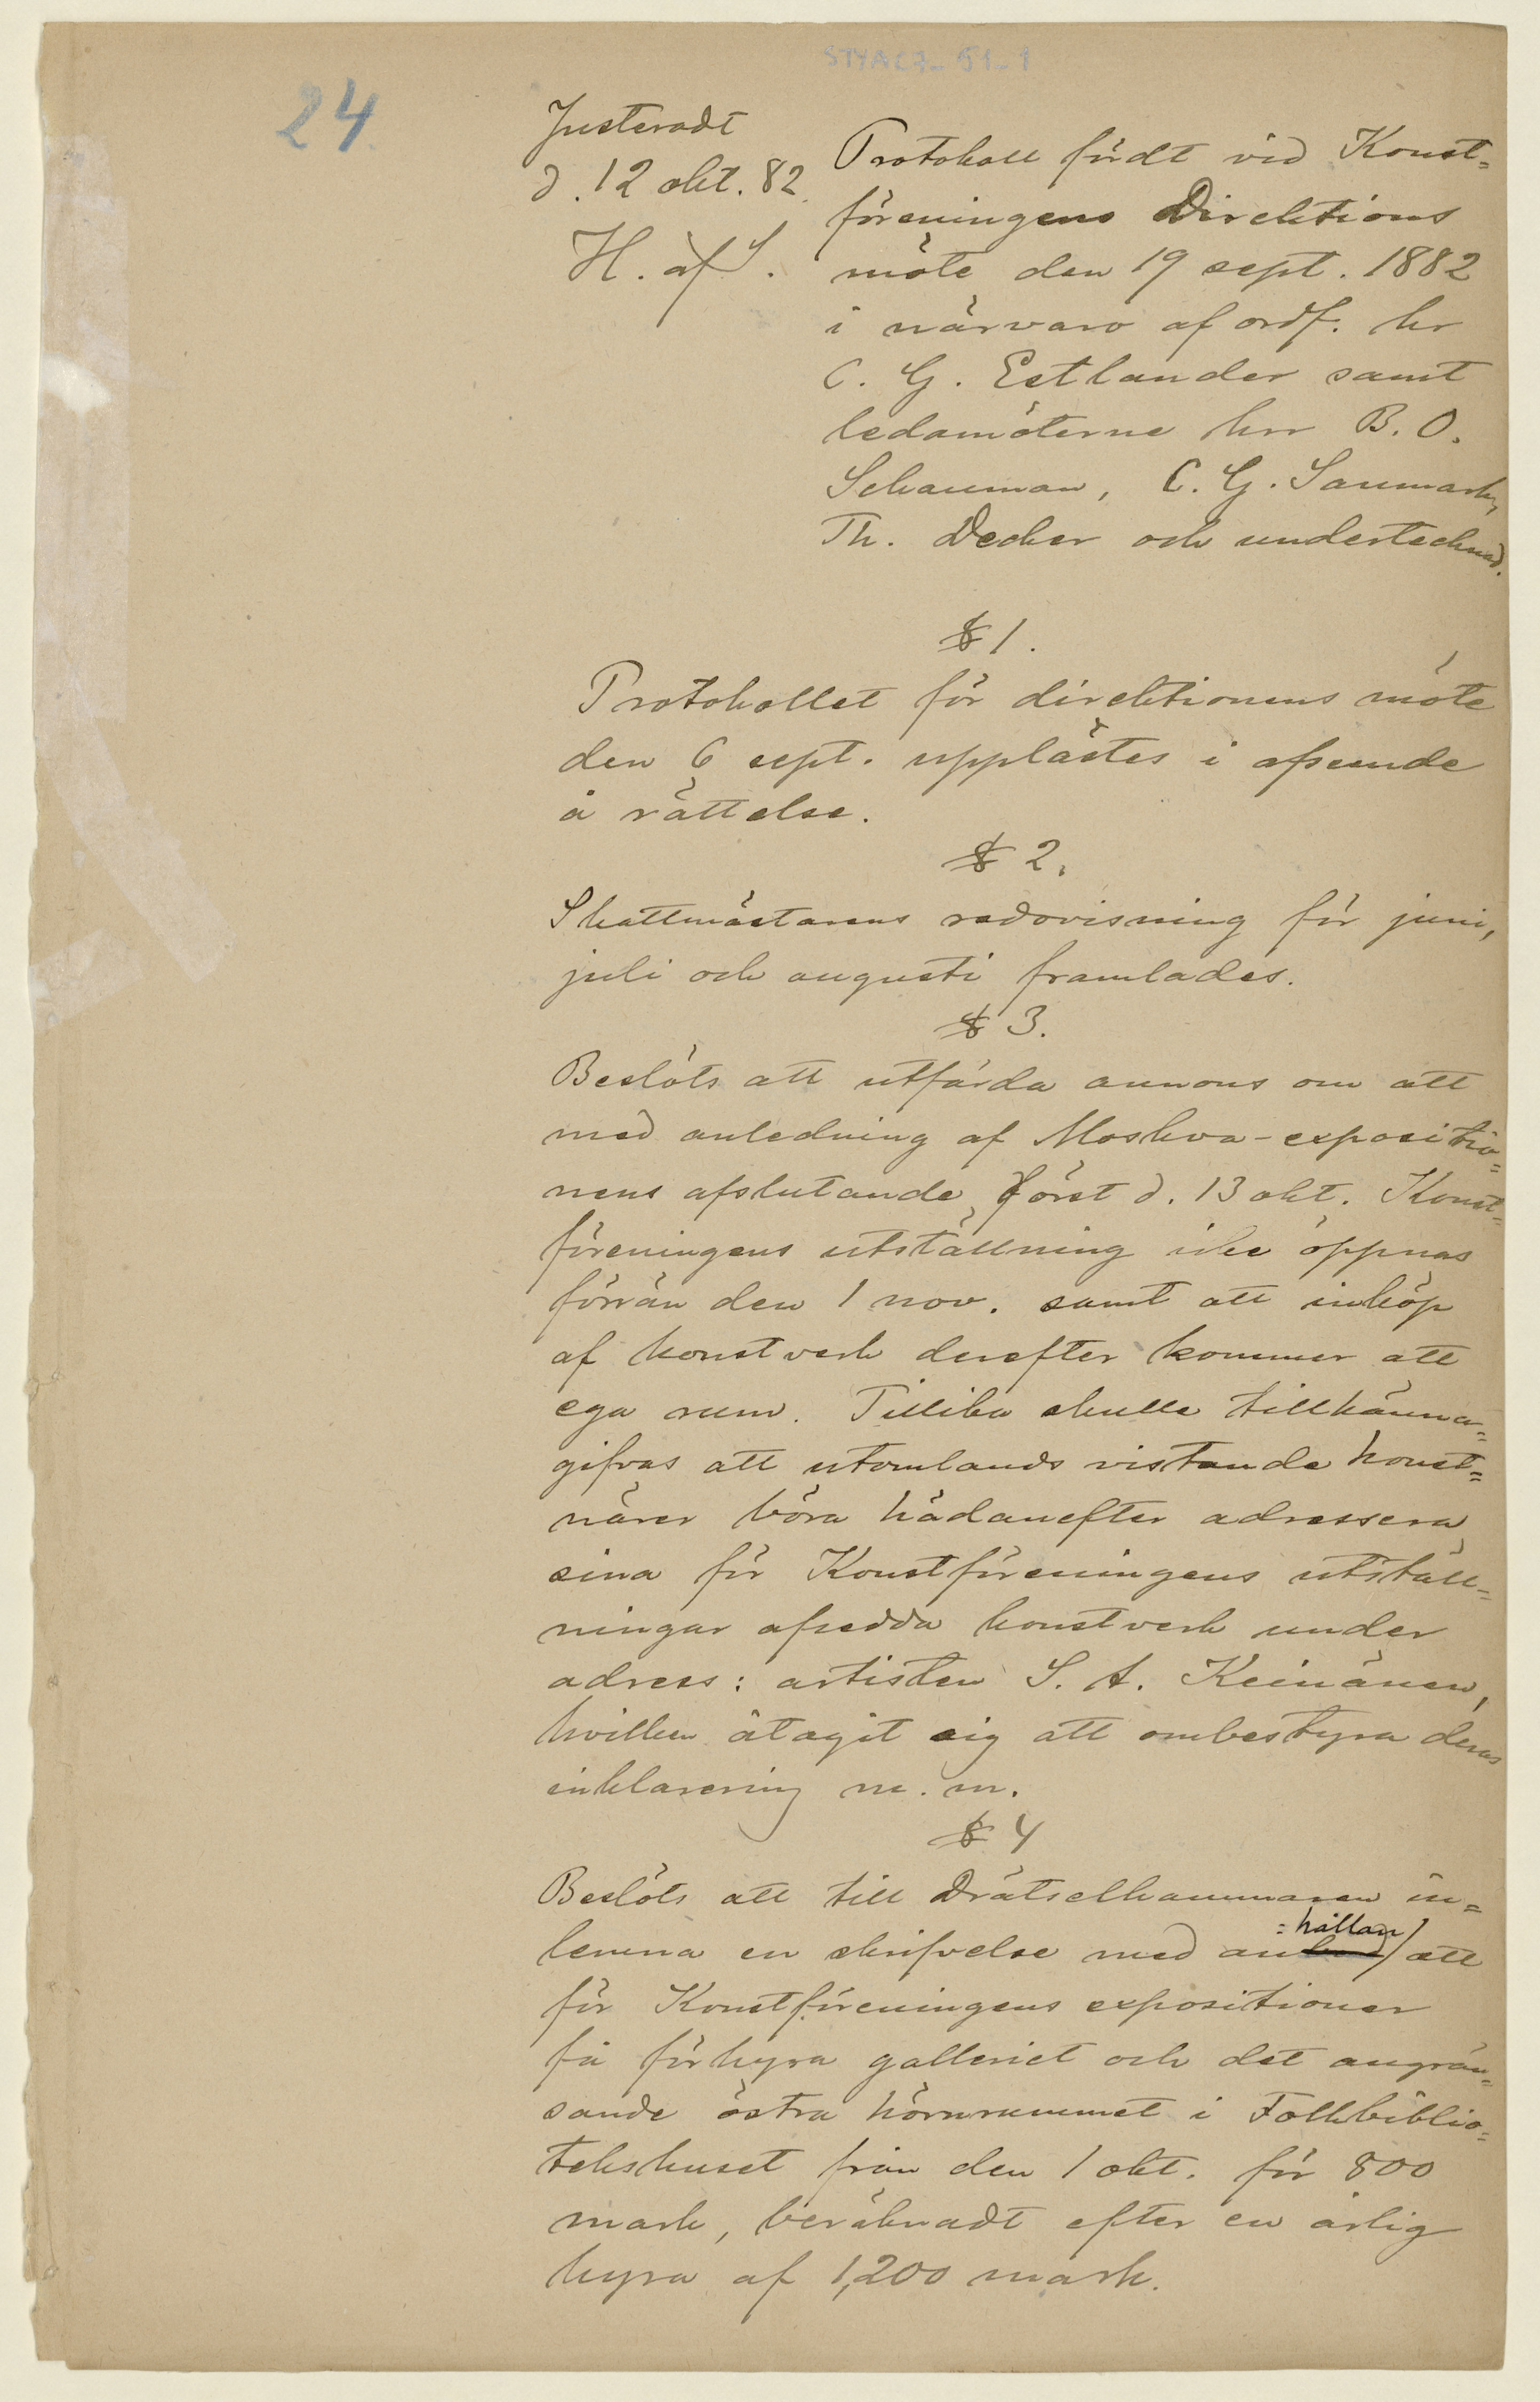 STYAC7-51-1
24.
Justeradt
d. 12 okt. 82.
H. af S.
Protokoll fördt vid Konst=
föreningens Direktions
möte den 19 sept. 1882
i närvaro af ordf. hr
C. G. Estlander samt
ledamöterne hrr B. O.
Schauman, C. G. Sanmark,
Th. Decker och undertecknad.
§ 1.
Protokollet för direktionens möte
den 6 sept. upplästes i afseende
å rättelse.
§ 2.
Skattmästarens redovisning för juni,
juli och augusti framlades.
§ 3.
Beslöts att utfärda annons om att
med anledning af Moskva-expositio=
nens afslutande först d. 13 okt. Konst=
föreningens utställning icke öppnas
förrän den 1 nov. samt att inköp
af konstverk derefter kommer att
ega rum. Tillika skulle tillkänna=
gifvas att utomlands vistande konst=
närer böra hädanefter adressera
sina för Konstföreningens utställ=
ningar afsedda konstverk under
adress: artisten S. A. Keinänen,
hvilken åtagit sig att ombestyra deras
inklarering m. m.
§ 4
Beslöts att till Drätselkammaren in=
lemna en skrifvelse med an=hållan att
för Konstföreningens expositioner
få förhyra galleriet och det angrän=
sande östra hörnrummet i Folkbiblio=
tekshuset från den 1 okt. för 800
mark, beräknadt efter en årlig
hyra af 1,200 mark.